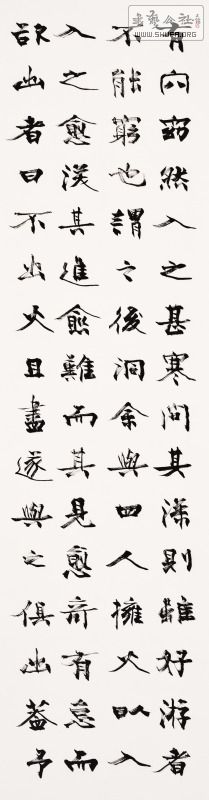 有穴窈然入之甚寒問其深則雖好游者
不能窮也謂之後洞余與四人擁火以入
入之愈深其進愈難而其見愈奇有怠而
欲出者曰不出火且盡遂與之俱出蓋予
書藝公社
WWW.SHUFA.ORG